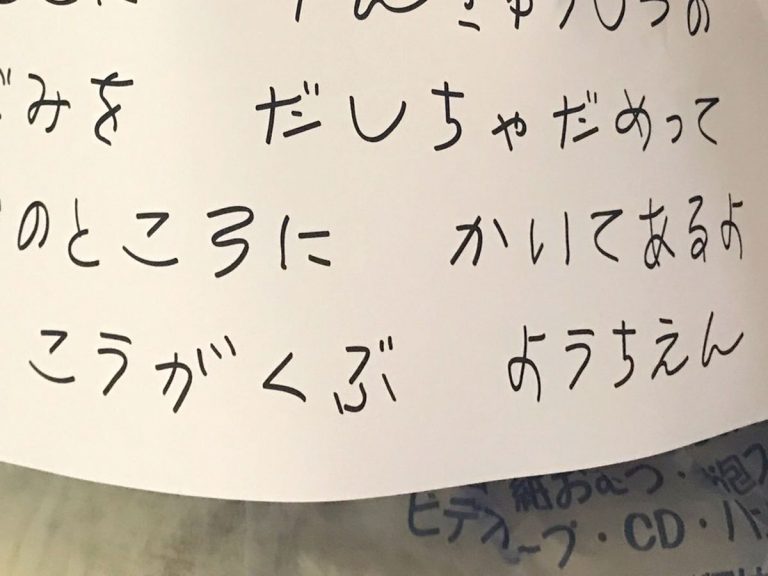 んきゅうしつの
みを　だしちゃだめって
のところに　かいてあるよ
こうがくぶ　ようちえん
紙おむつ・
ープ・CD・